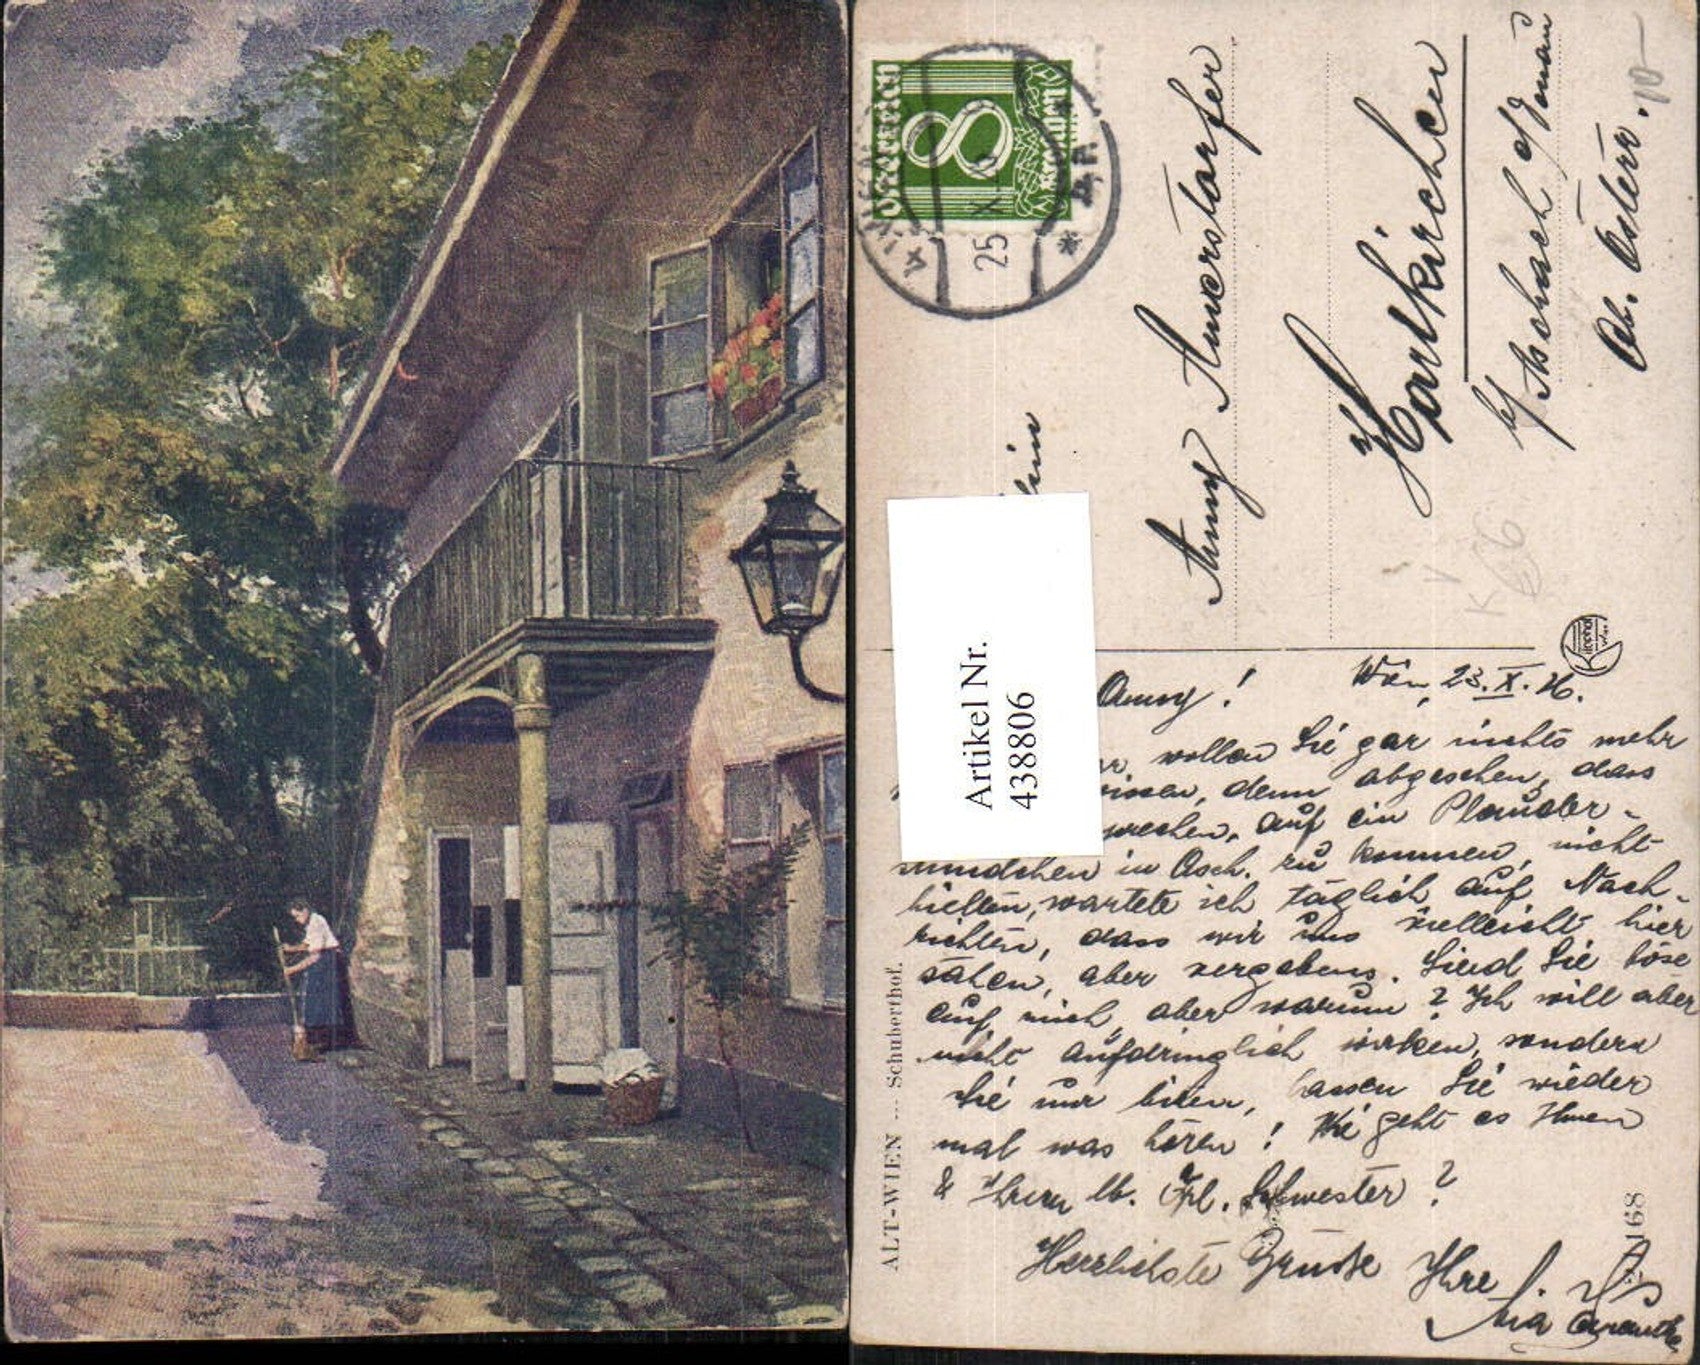 Österreich
8
Groschen
WIEN
25 X
Anny Amerstorfer
Hartkirchen
b/ Aschach a/ Donau
Ob. Österr.
10-
K 66
Artikel Nr.
438806
ALT-WIEN --- Schuberthof.
168
Anny! Wien, 23. X. 26.
wollen Sie gar nichts mehr
wissen, denn abgesehen, dass
sprechen, auf ein Plauder-
stündchen in Asch. zu kommen, nicht
hielten, wartete ich täglich auf Nach-
richten, dass wir uns vielleicht hier
sähen, aber vergebens. Sind Sie böse
auf mich, aber warum? Ich will aber
nicht aufdringlich wirken, sondern
Sie nur bitten, lassen Sie wieder
mal was hören! Wie geht es Ihnen
& Ihrer lb. Frl. Schwester?
Herzlichste Grüsse Ihre